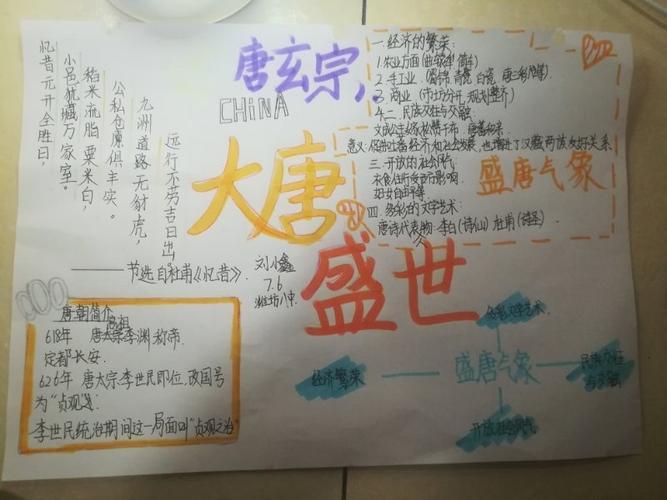 忆昔元开全胜日,
小邑犹藏万家室。
稻米流脂粟米白,
公私仓廪俱丰实。
九洲道路无豺虎,
远行不劳吉日出。
——节选自杜甫《忆昔》.
唐玄宗
CHiNA
大唐
盛世
刘小鑫
7.6
潍坊八中
一 经济的繁荣:
1.农业方面(曲辕犁 筒车)
2.手工业
3.商业 (市坊分开,规划整齐)
二.民族交往与交融
文成公主嫁松赞干布
意义:促进吐蕃经济和社会发展,也增进了汉藏两族友好关系
三.开放的社会风气
衣食住所受西市影响.
妇女自由平等
四.多彩的文学艺术
唐诗代表人物:李白(诗仙)杜甫(诗圣)
盛唐气象
唐朝简介
618年 唐太宗李渊称帝.
定都长安.
626年 唐太宗李世民即位,改国号
为"贞观".
李世民统治期间这一局面叫"贞观之治"
多彩文学艺术
经济繁荣
盛唐气象
民族交往
与交融
开放社会风气